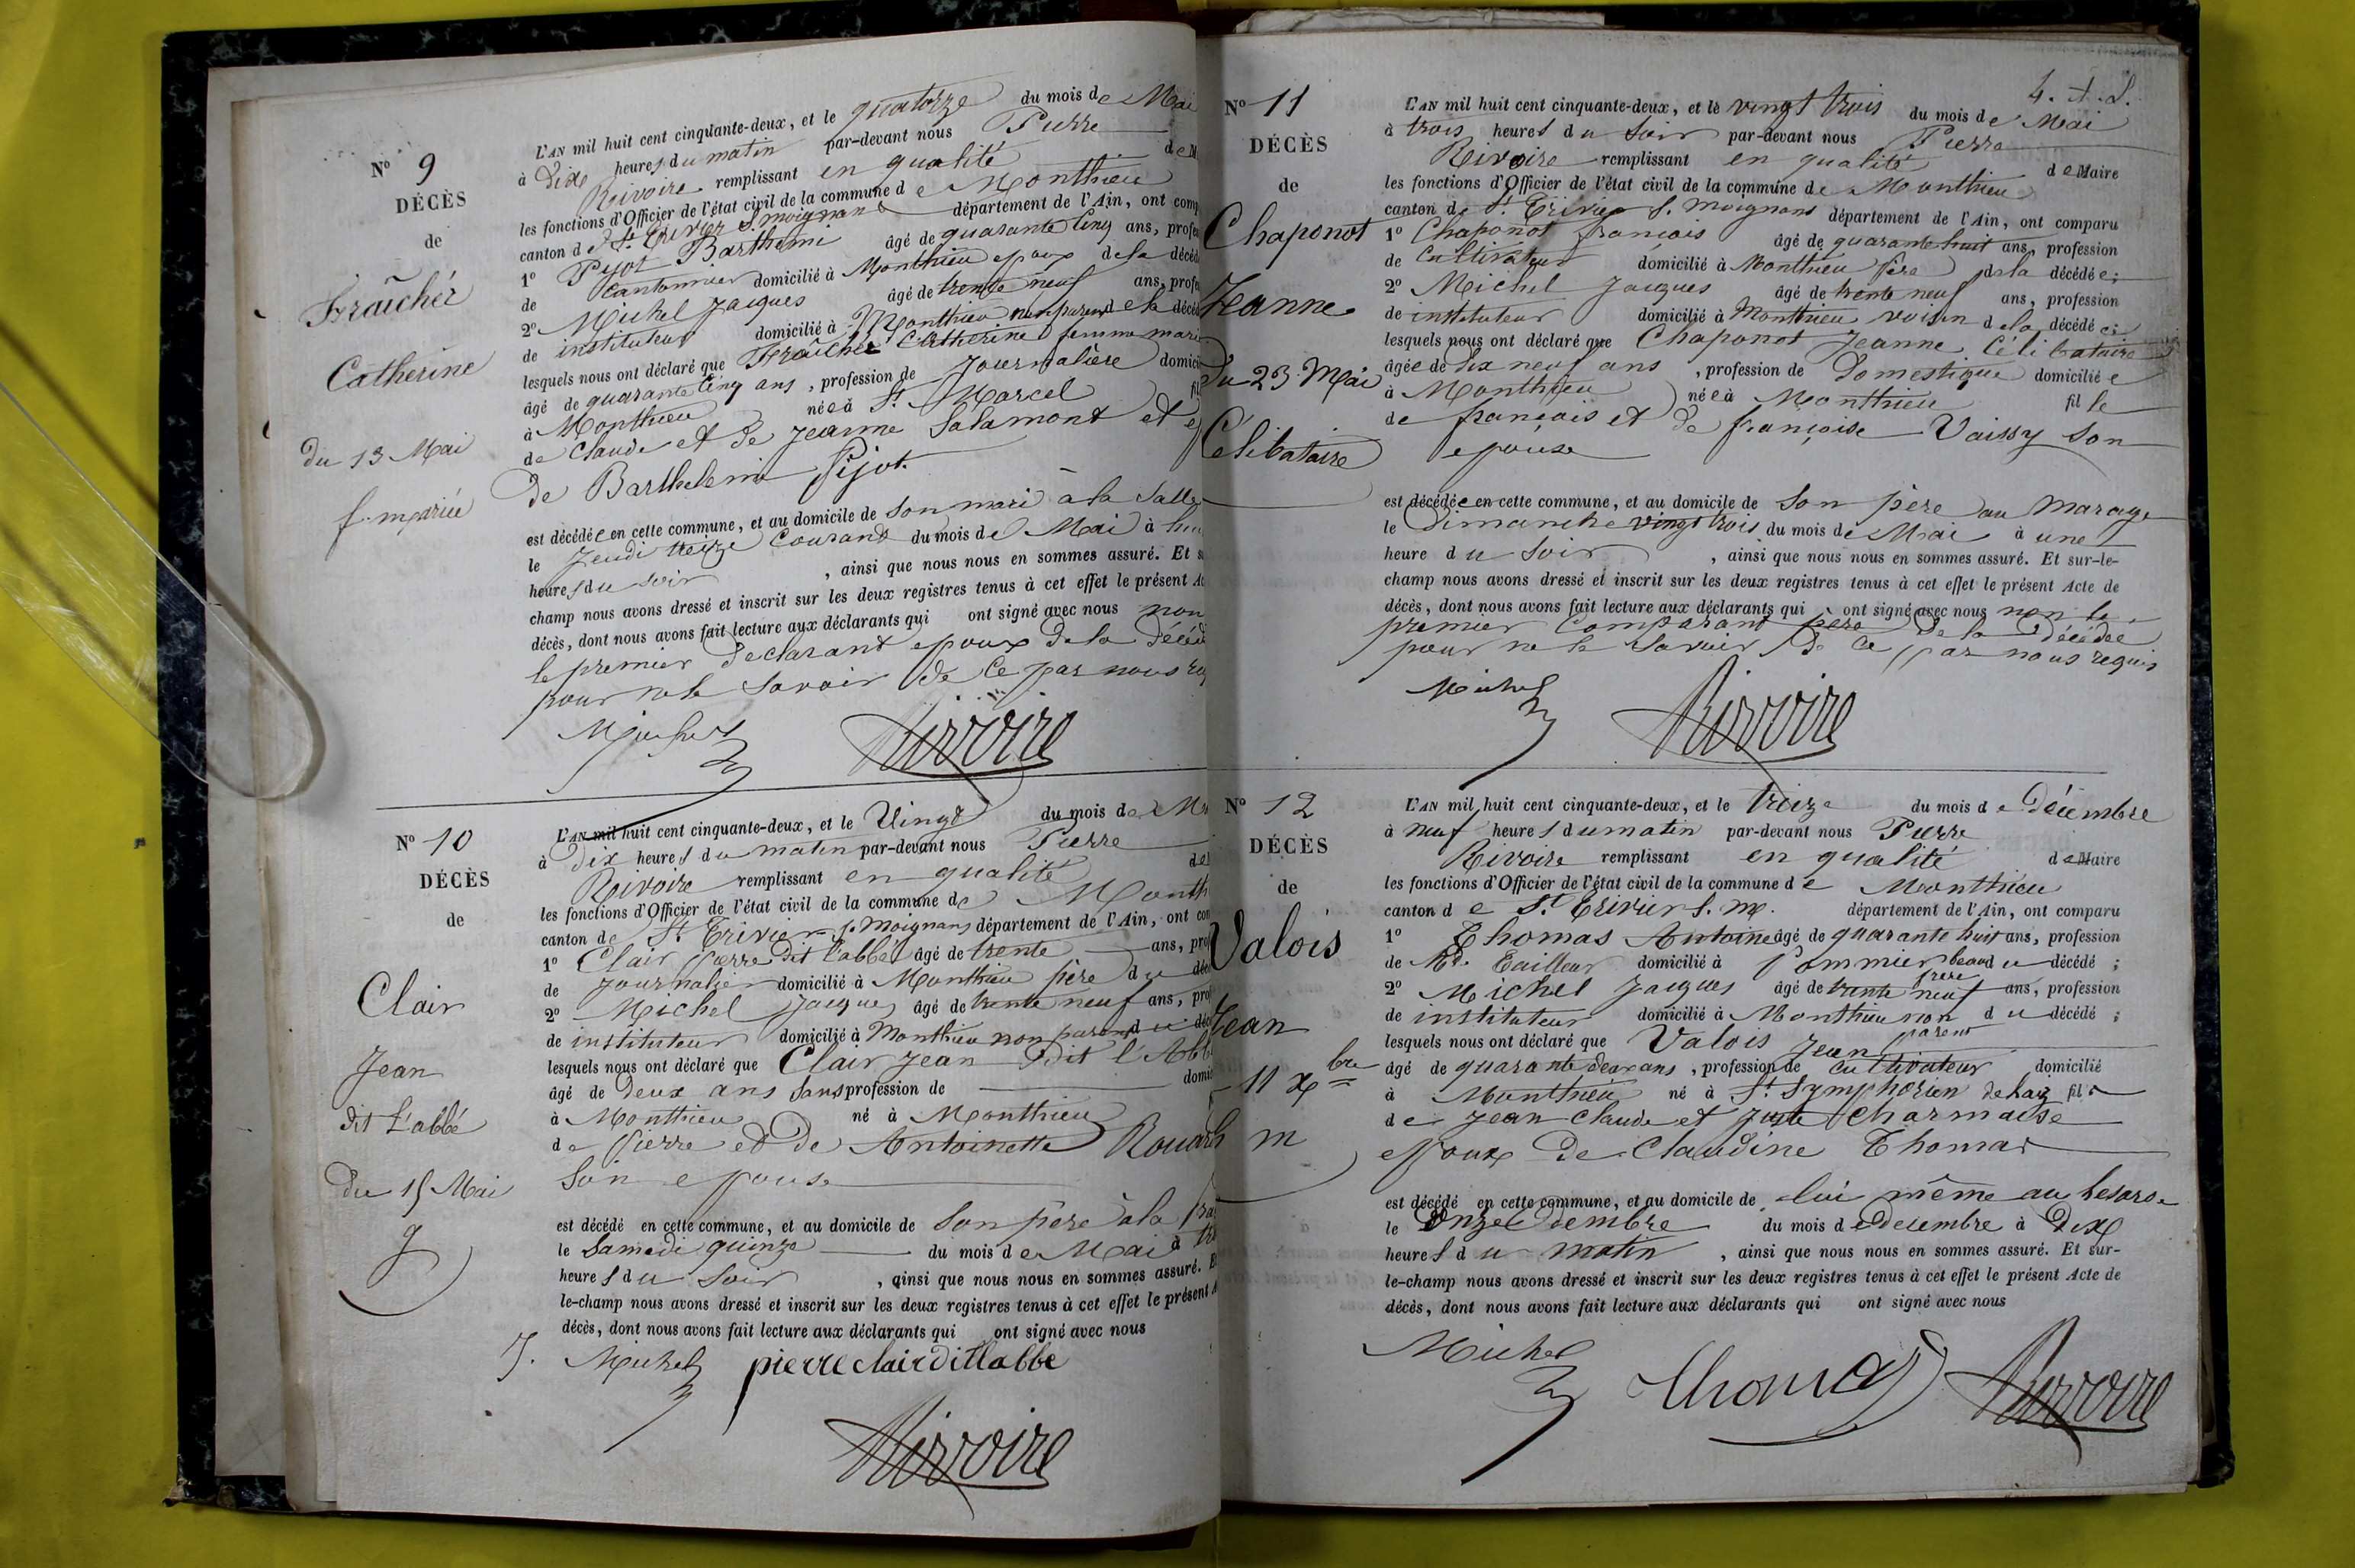 N° 9
DÉCÈS
de
Fraîcher
Catherine
du 13 Mai
f. mariée
L'AN mil huit cent cinquante-deux, et le quatorze du mois de Mai
à dix heures du matin par-devant nous Pierre
Rivoire remplissant en qualité de M
les fonctions d'Officier de l'état civil de la commune de Monthieu
canton de St Trivier S. moignans département de l'Ain, ont comp
1° Pijot Barthemi âgé de quarante cinq ans, profes
de Cantonnier domicilié à Monthieu epoux de la décéd
2° Michel Jacques âgé de trente neuf ans, profe
de instituteur domicilié à Monthieu non parent de la décéd
lesquels nous ont déclaré que Fraîcher Catherine femme marié
âgé de quarante cinq ans, profession de Journalière domici
à Monthieu née à St Marcel fil
de Claude et de Jeanne Salamont et e
de Barthelemi Pijot.
est décédée en cette commune, et au domicile de son mari à la Salle
le Jeudi treize Courant du mois de Mai à hui
heures du soir, ainsi que nous nous en sommes assuré. Et s
champ nous avons dressé et inscrit sur les deux registres tenus à cet effet le présent Ac
décès, dont nous avons fait lecture aux déclarants qui ont signé avec nous non
le premier declarant epoux de la décéd
pour ne le savoir de ce par nous req
Michel Rivoire
N° 10
DÉCÈS
de
Clair
Jean
dit L'abbé
du 15 Mai
g
L'AN mil huit cent cinquante-deux, et le Vingt du mois de M
à Dix heures du matin par-devant nous Pierre
Rivoire remplissant en qualité de
les fonctions d'Officier de l'état civil de la commune de Month
canton de St Trivier S. Moignans département de l'Ain, ont com
1° Clair pierre dit l'abbé âgé de trente ans, prof
de journalier domicilié à Monthieu père du déc
2° Michel Jacques âgé de trente neuf ans, prof
de instituteur domicilié à Monthieu non parent du déc
lesquels nous ont déclaré que Clair Jean dit l'Abb
âgé de Deux ans Sans profession de domic
à Monthieu né à Monthieu
de Pierre et de Antoinette Rouach
Son epouse
est décédé en cette commune, et au domicile de son père à la
le Samedi quinze du mois de Mai à tr
heures du Soir, ainsi que nous nous en sommes assuré. E
le-champ nous avons dressé et inscrit sur les deux registres tenus à cet effet le présent A
décès, dont nous avons fait lecture aux déclarants qui ont signé avec nous
J. Michel pierre clair dit labbe
Rivoire
4. A. D.
N° 11
DÉCÈS
de
Chaponot
Jeanne
Du 23 Mai
Célibataire
L'AN mil huit cent cinquante-deux, et le vingt trois du mois de Mai
à trois heures du Soir par-devant nous Pierre
Rivoire remplissant en qualité de Maire
les fonctions d'Officier de l'état civil de la commune de Monthieu
canton de St Trivier S. Moignans département de l'Ain, ont comparu
1° Chaponot françois âgé de quarante huit ans, profession
de Cultivateur domicilié à Monthieu père de la décédée;
2° Michel Jacques âgé de trente neuf ans, profession
de instituteur domicilié à Monthieu voisin de la décédée;
lesquels nous ont déclaré que Chaponot Jeanne, Célibataire
âgée de dix neuf ans, profession de Domestique domiciliée
à Monthieu née à Monthieu fille
de françois et de françoise Vaissy son
epouse
est décédée en cette commune, et au domicile de son père au marage
le Dimanche vingt trois du mois de Mai à une
heure du Soir, ainsi que nous nous en sommes assuré. Et sur-le-
champ nous avons dressé et inscrit sur les deux registres tenus à cet effet le présent Acte de
décès, dont nous avons fait lecture aux déclarants qui ont signé avec nous non le
premier Comparant père de la décédée
pour ne le savoir de ce par nous requis
Michel Rivoire
N° 12
DÉCÈS
de
Valois
Jean
11 Xbre
m
L'AN mil huit cent cinquante-deux, et le treize du mois de Décembre
à neuf heures du matin par-devant nous Pierre
Rivoire remplissant en qualité de Maire
les fonctions d'Officier de l'état civil de la commune de Monthieu
canton de St Trivier S. m. département de l'Ain, ont comparu
1° Thomas Antoine âgé de quarante huit ans, profession
de Md. Tailleur domicilié à Pommier beau frère du décédé;
2° Michel Jacques âgé de trente neuf ans, profession
de instituteur domicilié à Monthieu non parent du décédé;
lesquels nous ont déclaré que Valois Jean
âgé de quarante deux ans, profession de cultivateur domicilié
à Monthieu né à St Symphorien de Lay fils
de Jean Claude et Juste Charmaise
epoux de Claudine Thomas
est décédé en cette commune, et au domicile de lui même au
le onze du mois de decembre à Dix
heures du matin, ainsi que nous nous en sommes assuré. Et sur-
le-champ nous avons dressé et inscrit sur les deux registres tenus à cet effet le présent Acte de
décès, dont nous avons fait lecture aux déclarants qui ont signé avec nous
Michel Thomas Rivoire